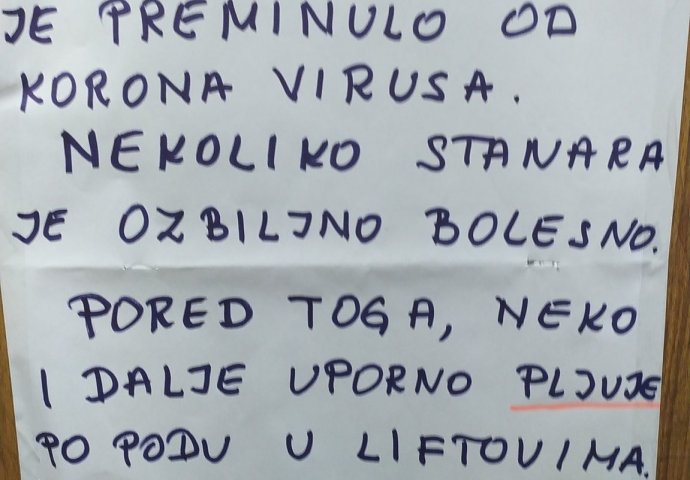 JE PREMINULO OD
KORONA VIRUSA.
NEKOLIKO STANARA
JE OZBILJNO BOLESNO.
PORED TOGA, NEKO
I DALJE UPORNO PLJUJE
PO PODU U LIFTOVIMA.